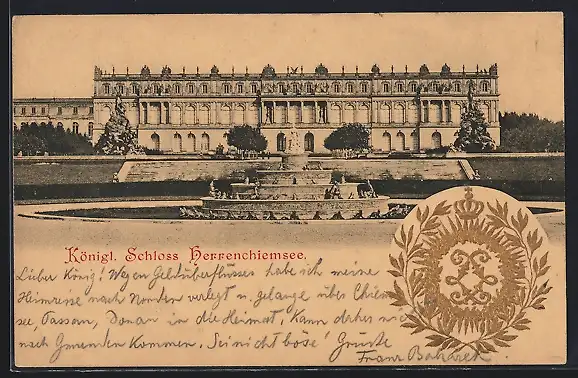 Königl. Schloss Herrenchiemsee.
Lieber König! Wegen Geldüberflusses habe ich meine
Heimreise nach Norden verlegt u. gelange über Chiem
see, Passau, Donau in die Heimat, Kann daher nicht
nach Gmunden kommen. Sei nicht böse! Grüsse
Franz